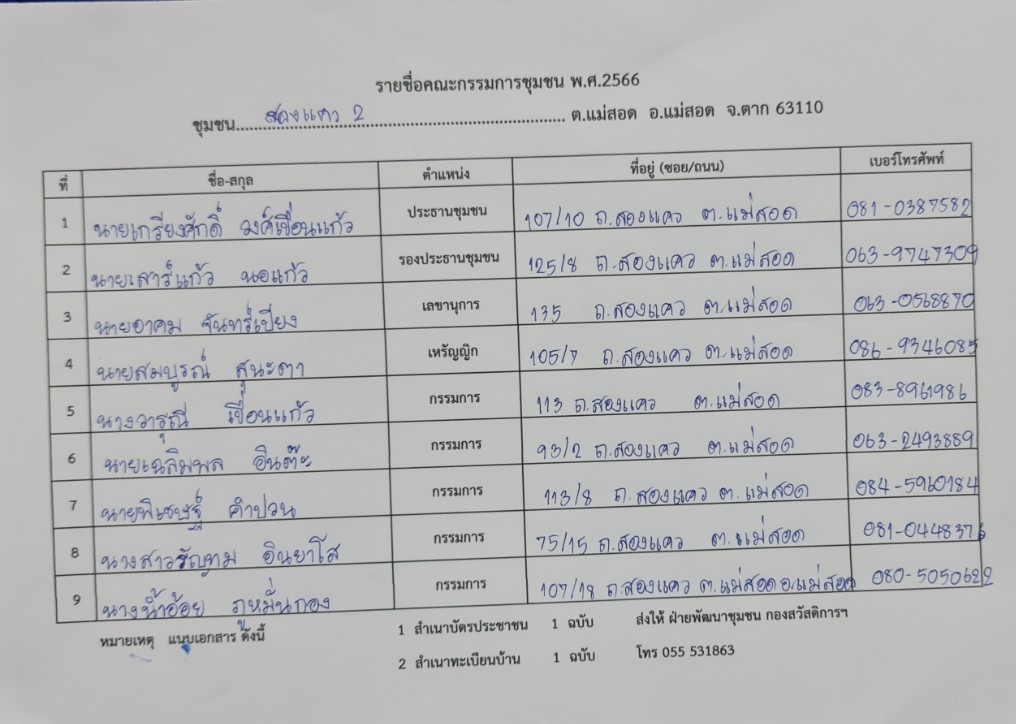 รายชื่อคณะกรรมการชุมชน พ.ศ.2566
ชุมชน สองแคว 2 ต.แม่สอด อ.แม่สอด จ.ตาก 63110
ที่ ชื่อ-สกุล ตำแหน่ง ที่อยู่ (ซอย/ถนน) เบอร์โทรศัพท์
1 นายเกรียงศักดิ์ วงศ์เขื่อนแก้ว ประธานชุมชน 107/10 ถ.สองแคว ต.แม่สอด 081-0387582
2 นายเสาร์แก้ว นอแก้ว รองประธานชุมชน 125/8 ถ.สองแคว ต.แม่สอด 063-9747309
3 นายอาคม จันทร์เปียง เลขานุการ 135 ถ.สองแคว ต.แม่สอด 063-0568870
4 นายสมบูรณ์ สุนะตา เหรัญญิก 105/7 ถ.สองแคว ต.แม่สอด 086-9346085
5 นางวารุณี เขื่อนแก้ว กรรมการ 113 ถ.สองแคว ต.แม่สอด 083-8961986
6 นายเฉลิมพล อินต๊ะ กรรมการ 93/2 ถ.สองแคว ต.แม่สอด 063-2493889
7 นายพิเชษฐ์ คำปวน กรรมการ 113/8 ถ.สองแคว ต.แม่สอด 084-5960184
8 นางสาวธัญกม อินยาโส กรรมการ 75/15 ถ.สองแคว ต.แม่สอด 081-0448376
9 นางน้ำอ้อย ภูหมั่นกอง กรรมการ 107/18 ถ.สองแคว ต.แม่สอด อ.แม่สอด 080-5050622
หมายเหตุ แนบเอกสาร ดังนี้ 1 สำเนาบัตรประชาชน 1 ฉบับ ส่งให้ ฝ่ายพัฒนาชุมชน กองสวัสดิการฯ
2 สำเนาทะเบียนบ้าน 1 ฉบับ โทร 055 531863